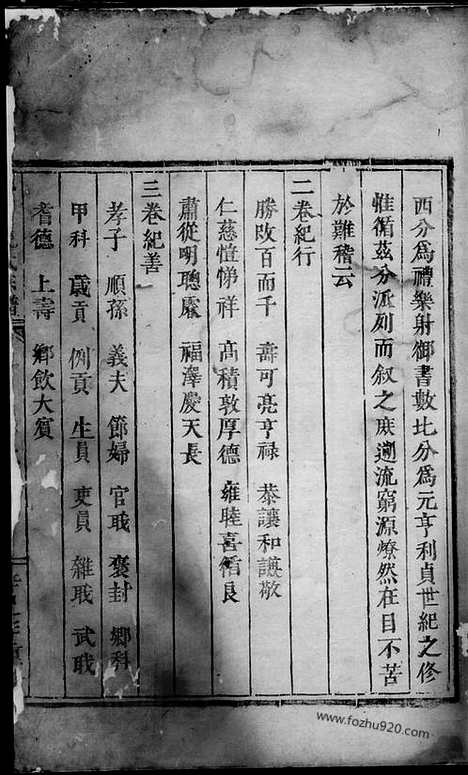 西分為禮樂射御書數比分為元亨利貞世紀之修
惟循茲分派列而叙之庶遡流窮源燎然在目不苦
於難稽云
二卷紀行
勝政百而千 壽可亮亨禄 恭讓和謙敬
仁慈愷悌祥 高積敦厚德 雍睦喜循良
肅從明聰處 福澤慶天長
三卷紀善
孝子 順孫 義夫 節婦 官職 褒封 鄉科
甲科 歲貢 例貢 生員 吏員 雜職 武職
耆德 上壽 鄉飲大賓
www.fozhu920.com